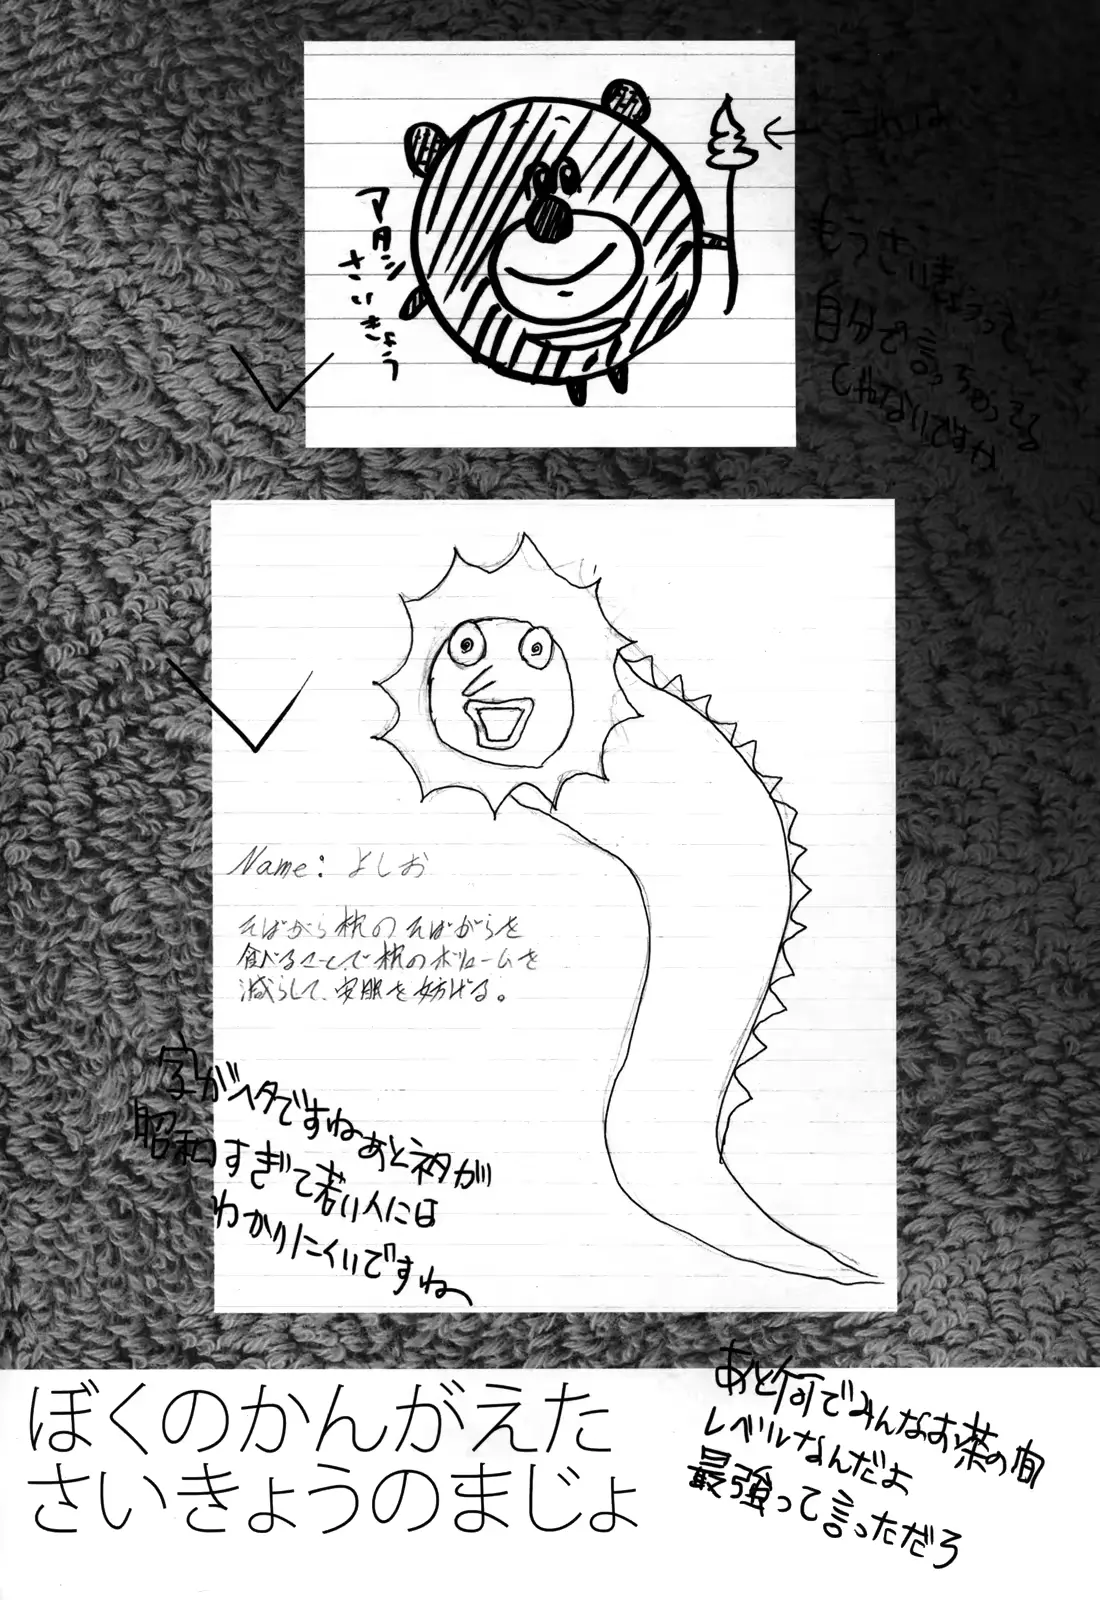 これは
アタシ
さいきょう
もうさいきょうって
自分で言っちゃってる
じゃないですか
Name: よしお
そばがら枕のそばがらを
食べることで枕のボリュームを
減らして、安眠を妨げる。
字がヘタですねあと初が
昭和すぎて若い人には
わかりにくいですね
あと何でみんなお茶の間
レベルなんだよ
最強って言っただろ
ぼくのかんがえた
さいきょうのまじょ